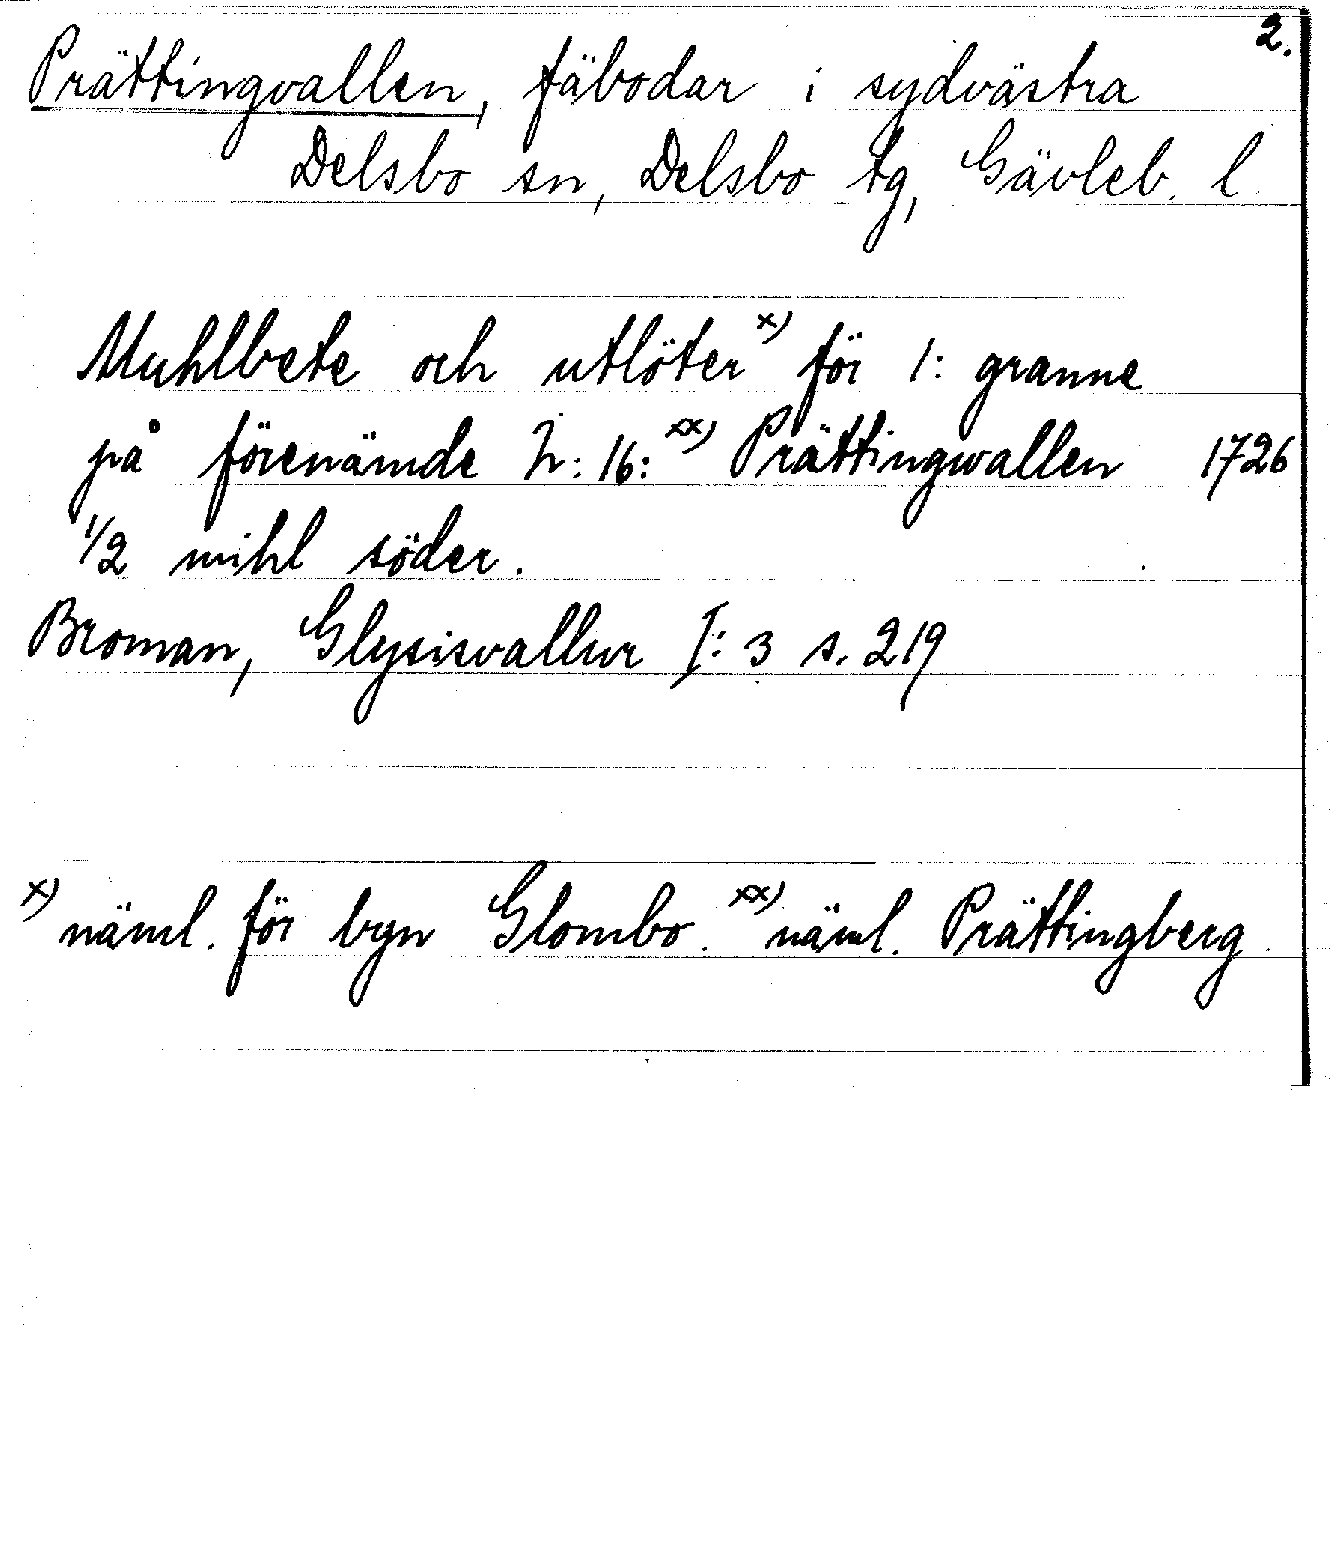 2.
Prättingvallen, fäbodar i sydvästra
Delsbo sn, Delsbo tg, Gävleb. l.
Muhlbete och utlöter x) för 1: granne
på förenämde h: 16: xx) Prättingwallen 1726
1/2 mihl söder.
Broman, Glysisvallur I: 3 s. 219
x) näml. för byn Glombo. xx) näml. Prättingberg.